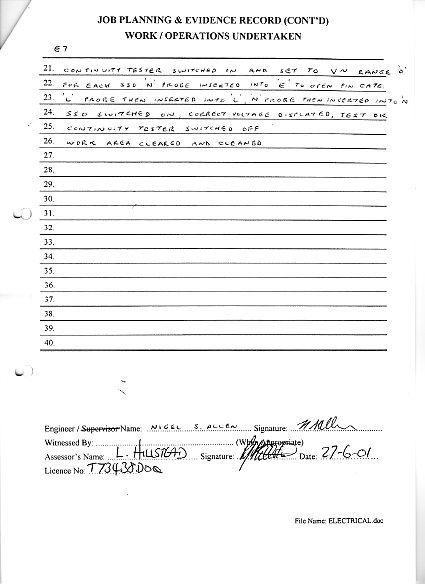 JOB PLANNING & EVIDENCE RECORD (CONT'D)
WORK / OPERATIONS UNDERTAKEN
E7
21. CONTINUITY TESTER SWITCHED ON AND SET TO V~ RANGE
22. FOR EACH SSO 'N' PROBE INSERTED INTO 'E' TO OPEN PIN GATE.
23. 'L' PROBE THEN INSERTED INTO 'L', N PROBE THEN INSERTED INTO 'N'
24. SSO SWITCHED ON, CORRECT VOLTAGE DISPLAYED, TEST OK
25. CONTINUITY TESTER SWITCHED OFF
26. WORK AREA CLEARED AND CLEANED
27.
28.
29.
30.
31.
32.
33.
34.
35.
36.
37.
38.
39.
40.
Engineer / Supervisor Name: NIGEL S. ALLEN Signature: N Allen
Witnessed By: (When Appropriate)
Assessor's Name: L. HILLSTEAD Signature: Date: 27-6-01
Licence No:
File Name: ELECTRICAL.doc